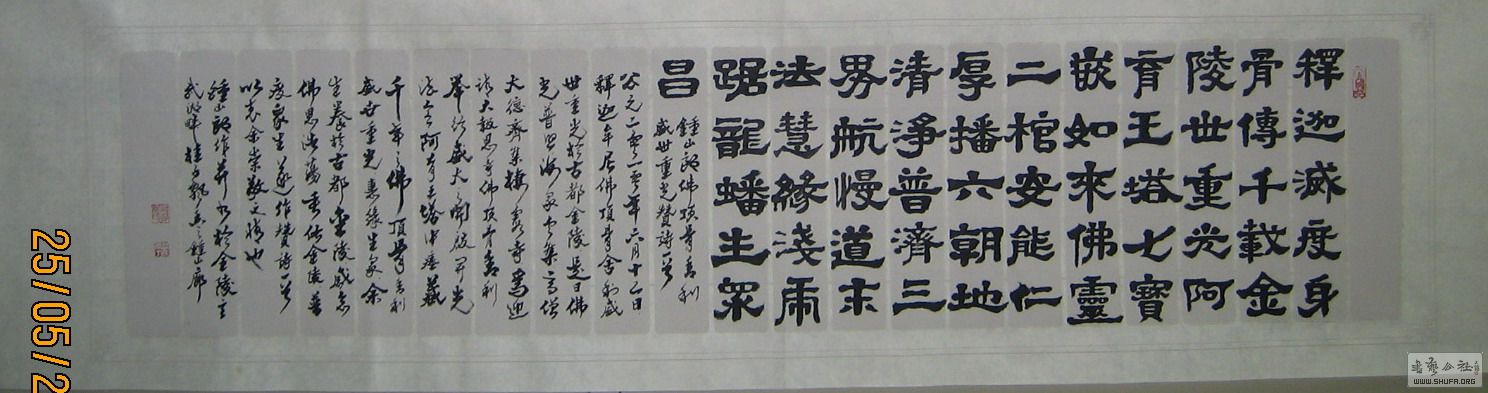 釋迦滅度身
骨傳千載金
陵世重光阿
育王塔七寶
嵌如來佛靈
二棺安能仁
厚播六朝地
清淨普濟三
界航慢道末
法慧緣淺虎
踞龍蟠生眾
昌
鍾山韵佛頂骨舍利
盛世重光贊詩一首
公元二零一零年六月十二日
釋迦牟尼佛頂骨舍利盛
世重光於古都金陵是日佛
光普照海眾雲集高僧
大德齊集棲霞寺恭迎
諸大報恩寺佛頂骨舍利
舉行盛大開啟開光
法會阿育王塔中瘞藏
千年之佛頂骨舍利
盛世重光惠緣生象余
生長於古都金陵感念
佛恩浩蕩
度眾生遂作贊詩一首
以表余崇敬之情也
鍾山韵作并書於金陵之
桂子飄香之鍾廊
25/05/2
書藝公社
WWW.SHUFA.ORG